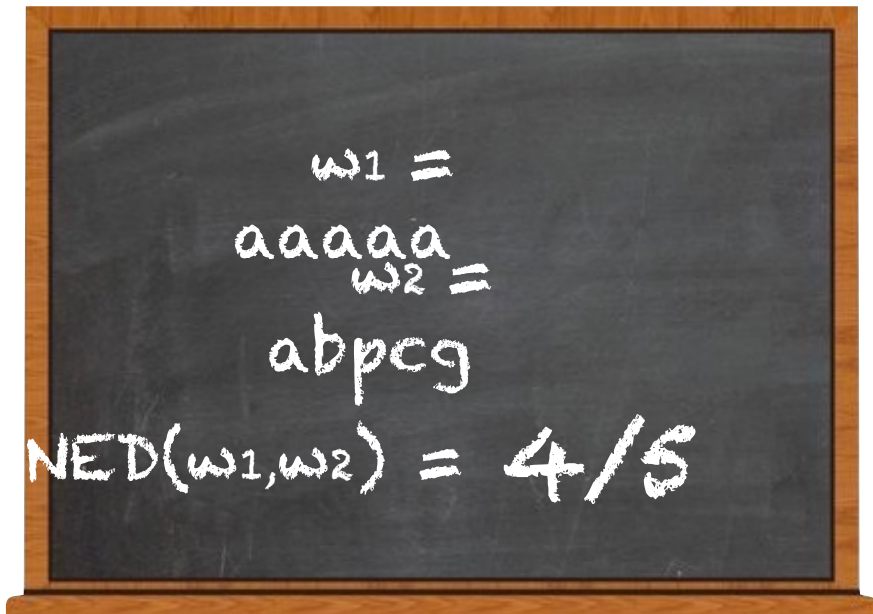 w1 =
aaaaa
w2 =
abpcg
NED(w1,w2) = 4/5